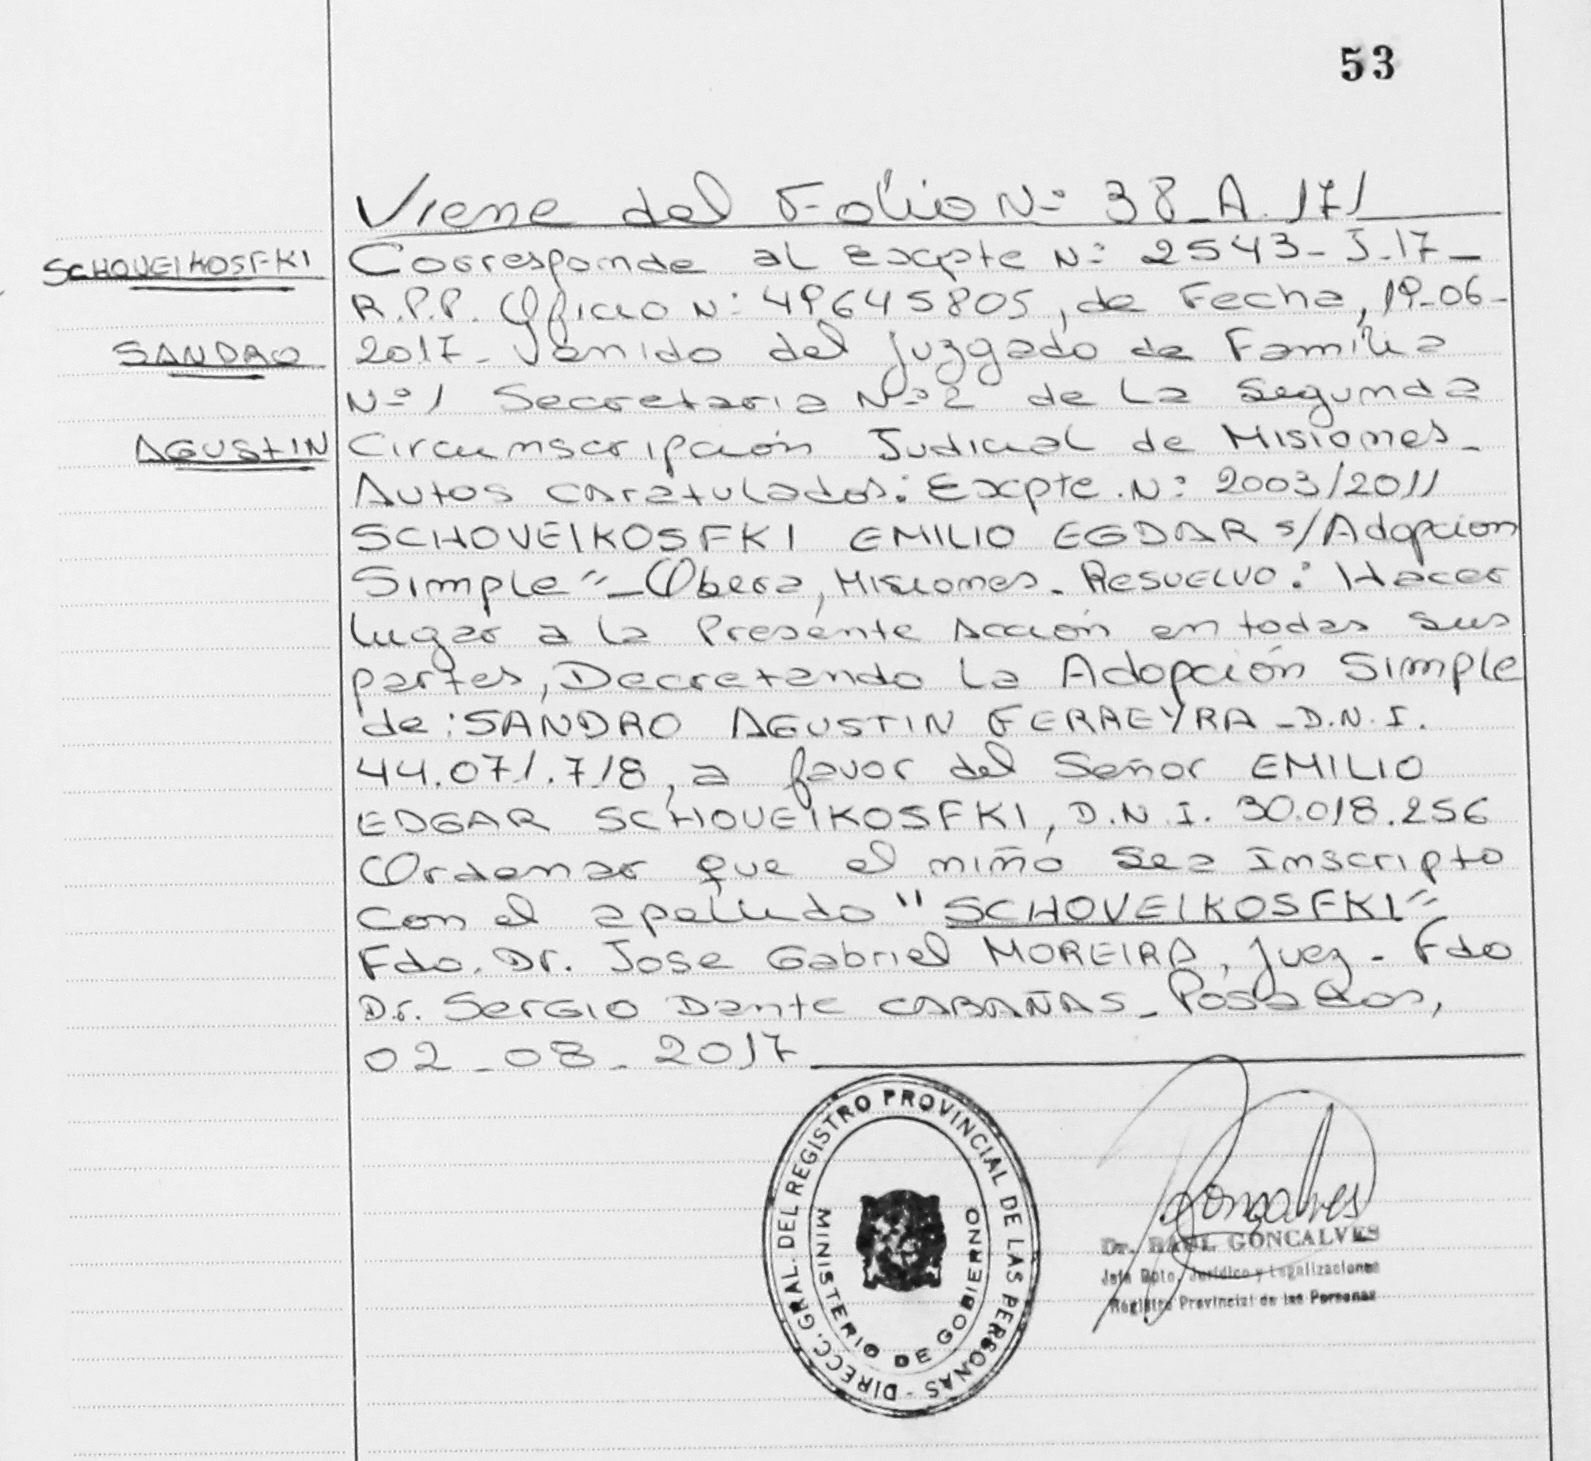 53
Viene del Folio Nº 38_A.171
SCHOVEIKOSFKI
Corresponde al Excpte Nº 2543-J.17-
R.P.P. Oficio Nº 49645805, de Fecha, 19-06-
SANDRO
2017- Venido del Juzgado de Familia
Nº1 Secretaria Nº2 de La Segunda
AGUSTIN
Circunscripción Judicial de Misiones-
Autos caratulados: Excpte. Nº 2003/2011
SCHOVEIKOSFKI EMILIO EGDAR s/Adopcion
Simple"-Obera, Misiones. Resuelvo: Hacer
lugar a la Presente Acción en todas sus
partes, Decretando La Adopción Simple
de: SANDRO AGUSTIN FERREYRA-D.N.I.
44.071.718, a favor del Señor EMILIO
EDGAR SCHOVEIKOSFKI, D.N.I. 30.018.256
Ordenar que el niño sea Inscripto
con el apellido "SCHOVEIKOSFKI"
Fdo. Dr. Jose Gabriel MOREIRA, Juez- Fdo
Dr. Sergio Dante CABAÑAS- Posadas,
02-08-2017
DIRECC. GRAL. DEL REGISTRO PROVINCIAL DE LAS PERSONAS -
MINISTERIO DE GOBIERNO
Goncalves
Dr. RAUL GONCALVES
Jefe Dpto. Jurídico y Legalizaciones
Registro Provincial de las Personas